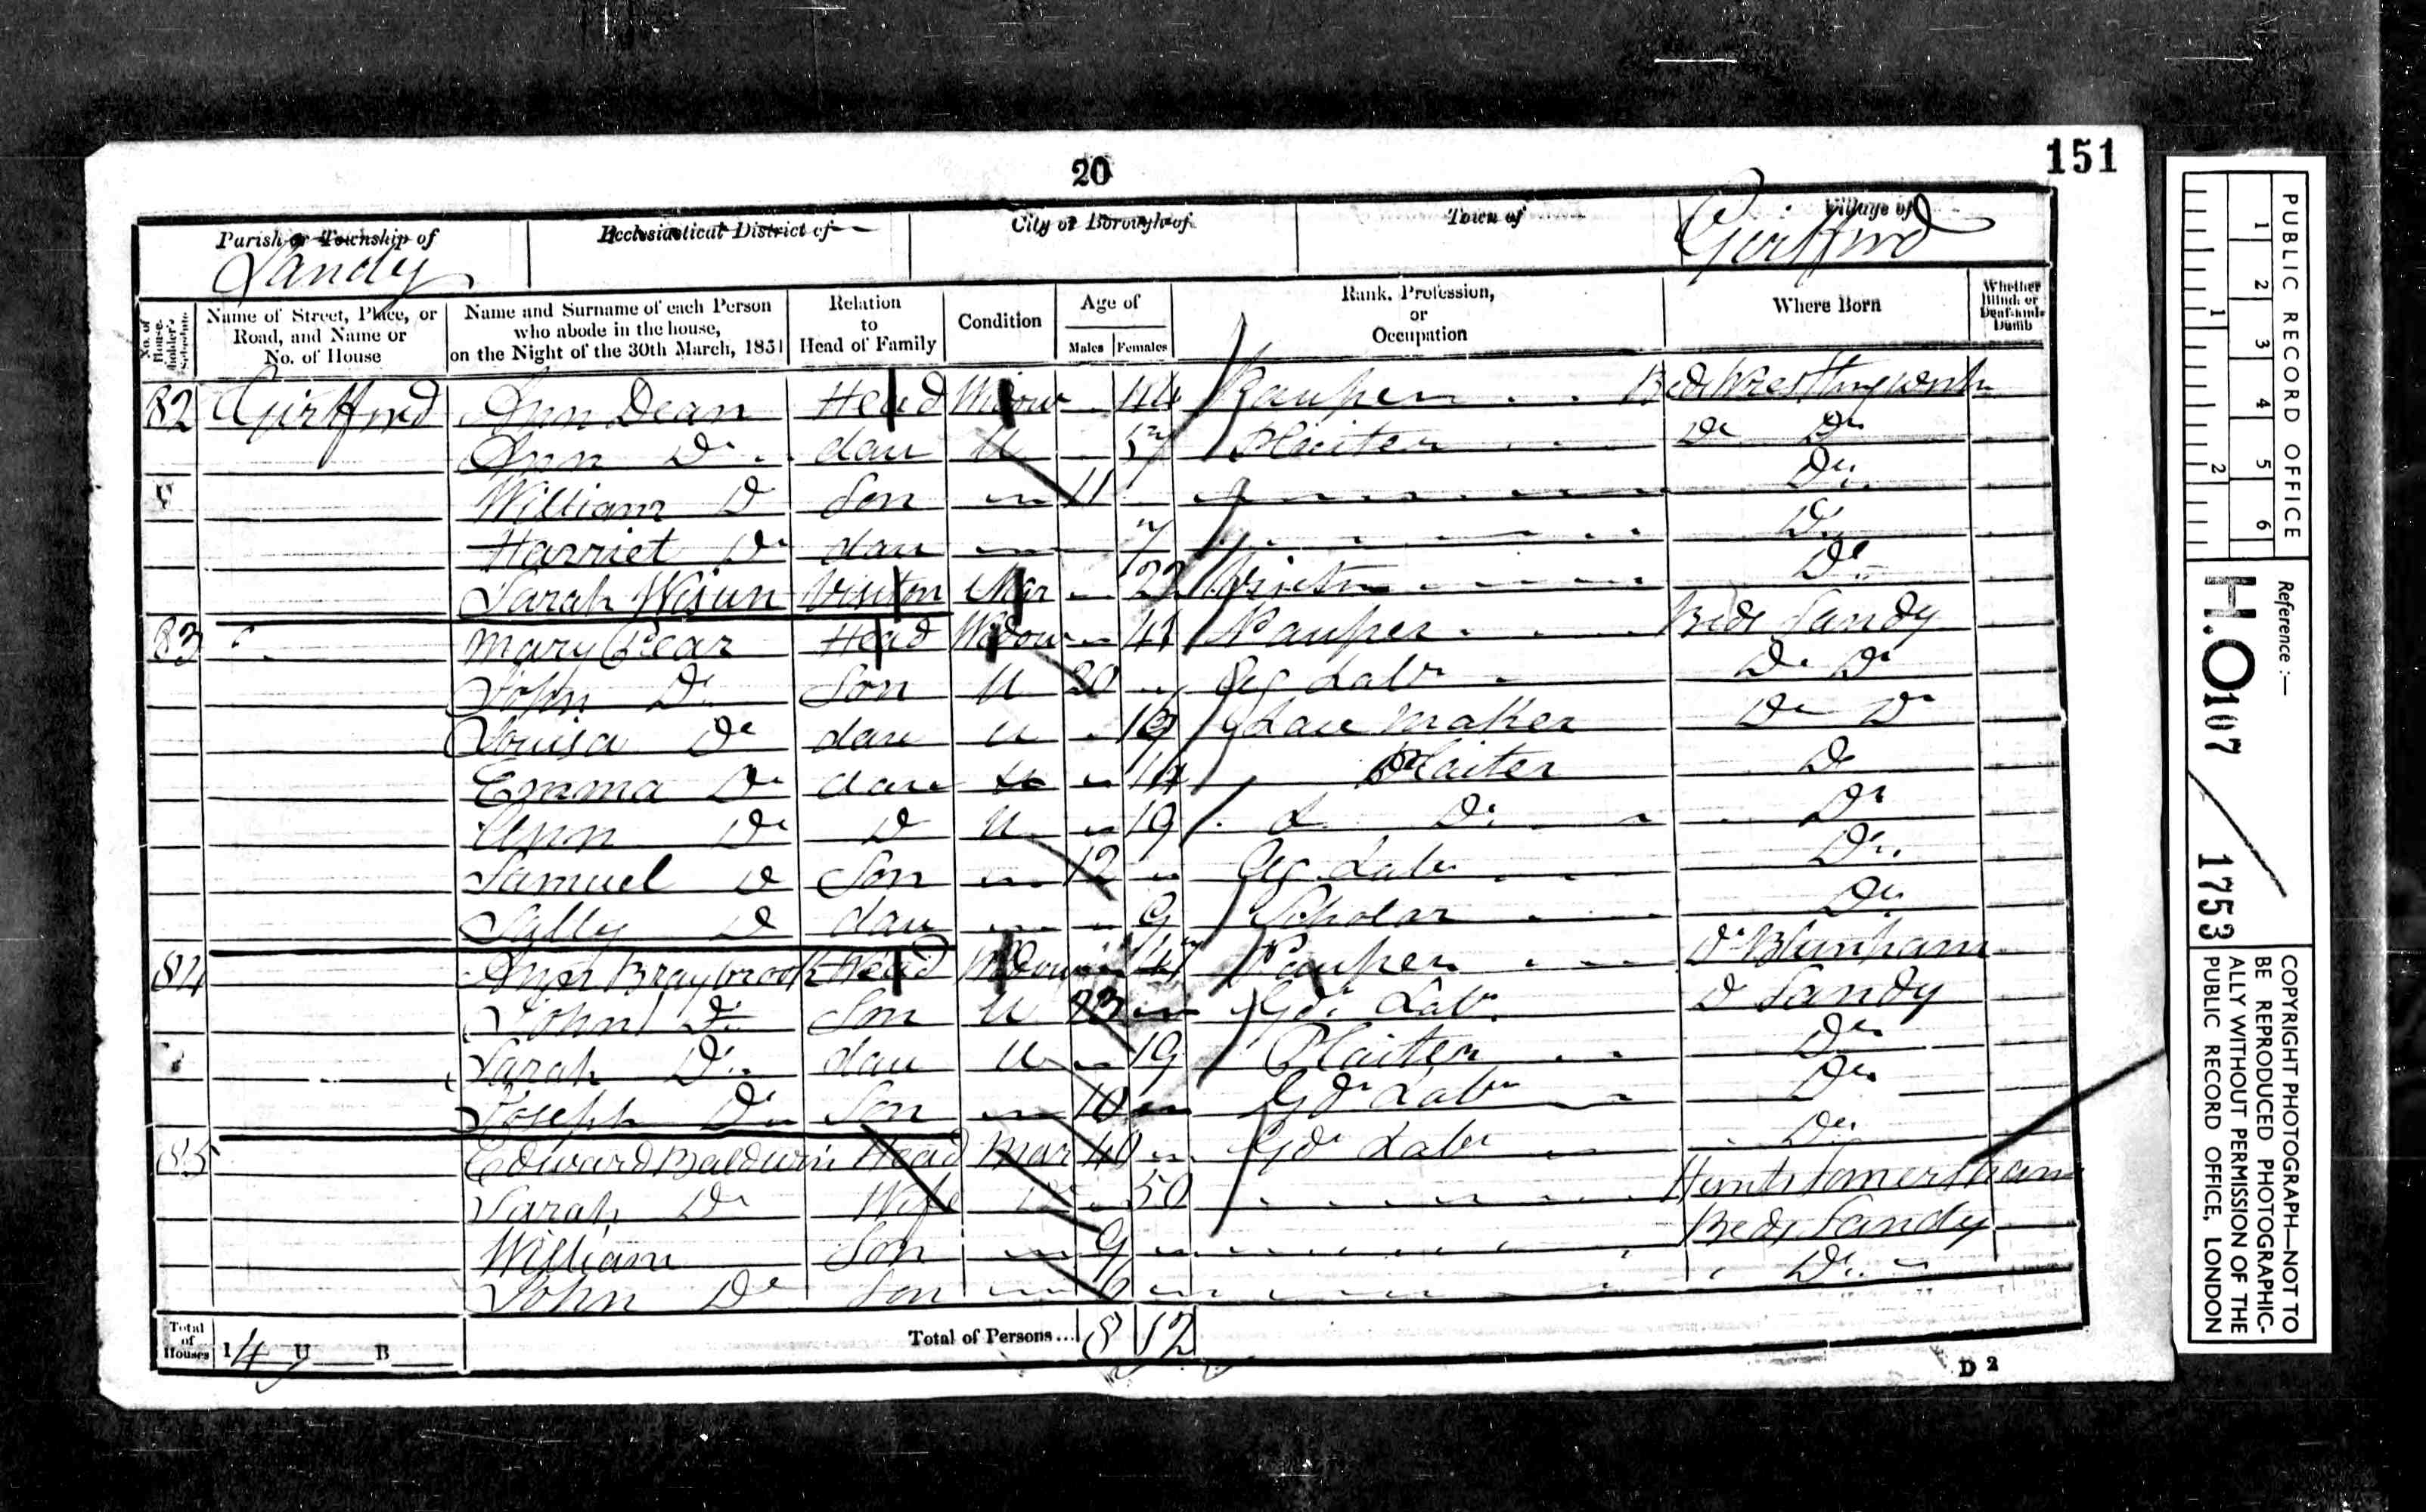 20
151
Parish or Township of
Sandy
Ecclesiastical District of
City or Borough of
Town of
Village of
Girtford
No. of House-holder's Schedule
Name of Street, Place, or Road, and Name or No. of House
Name and Surname of each Person who abode in the house, on the Night of the 30th March, 1851
Relation to Head of Family
Condition
Age of
Males
Females
Rank, Profession, or Occupation
Where Born
Whether Blind, or Deaf-and-Dumb
82 Girtford Ann Dean Head Widow 44 Pauper Beds Wrestlingworth
Ann Do dau U Plaiter Do Do
William D Son 11 Do
Harriet Do dau 7 Do
Sarah Visitor Mar 22 Visitor Do
83 Mary Head Widow 41 Pauper Beds Sandy
John Do Son U 20 Ag Labr Do Do
Louisa Do dau U 19 Lace Maker Do Do
Emma Do dau U 14 Plaiter Do
Ann Do D U 19 Do Do
Samuel D Son 12 Ag Labr Do
Sally D dau 9 Scholar Do
84 Ann Braybrook Head Widow 47 Pauper Do Blunham
John Do Son U 23 Gdr Labr D Sandy
Sarah Do dau U 19 Plaiter Do
Joseph Do Son 10 Gdr Labr Do
85 Edward Baldwin Head Mar 40 Gdr Labr Do
Sarah Do Wife Do 50 Hunts Somersham
William Son 9 Beds Sandy
John Do Son 6 Do
Total of Houses
I 4 U B
Total of Persons... 8 12
D 2
PUBLIC RECORD OFFICE
1 2 3 4 5 6
1 2
Reference :—
H.O 107 / 1753
COPYRIGHT PHOTOGRAPH—NOT TO BE REPRODUCED PHOTOGRAPHIC-ALLY WITHOUT PERMISSION OF THE PUBLIC RECORD OFFICE, LONDON